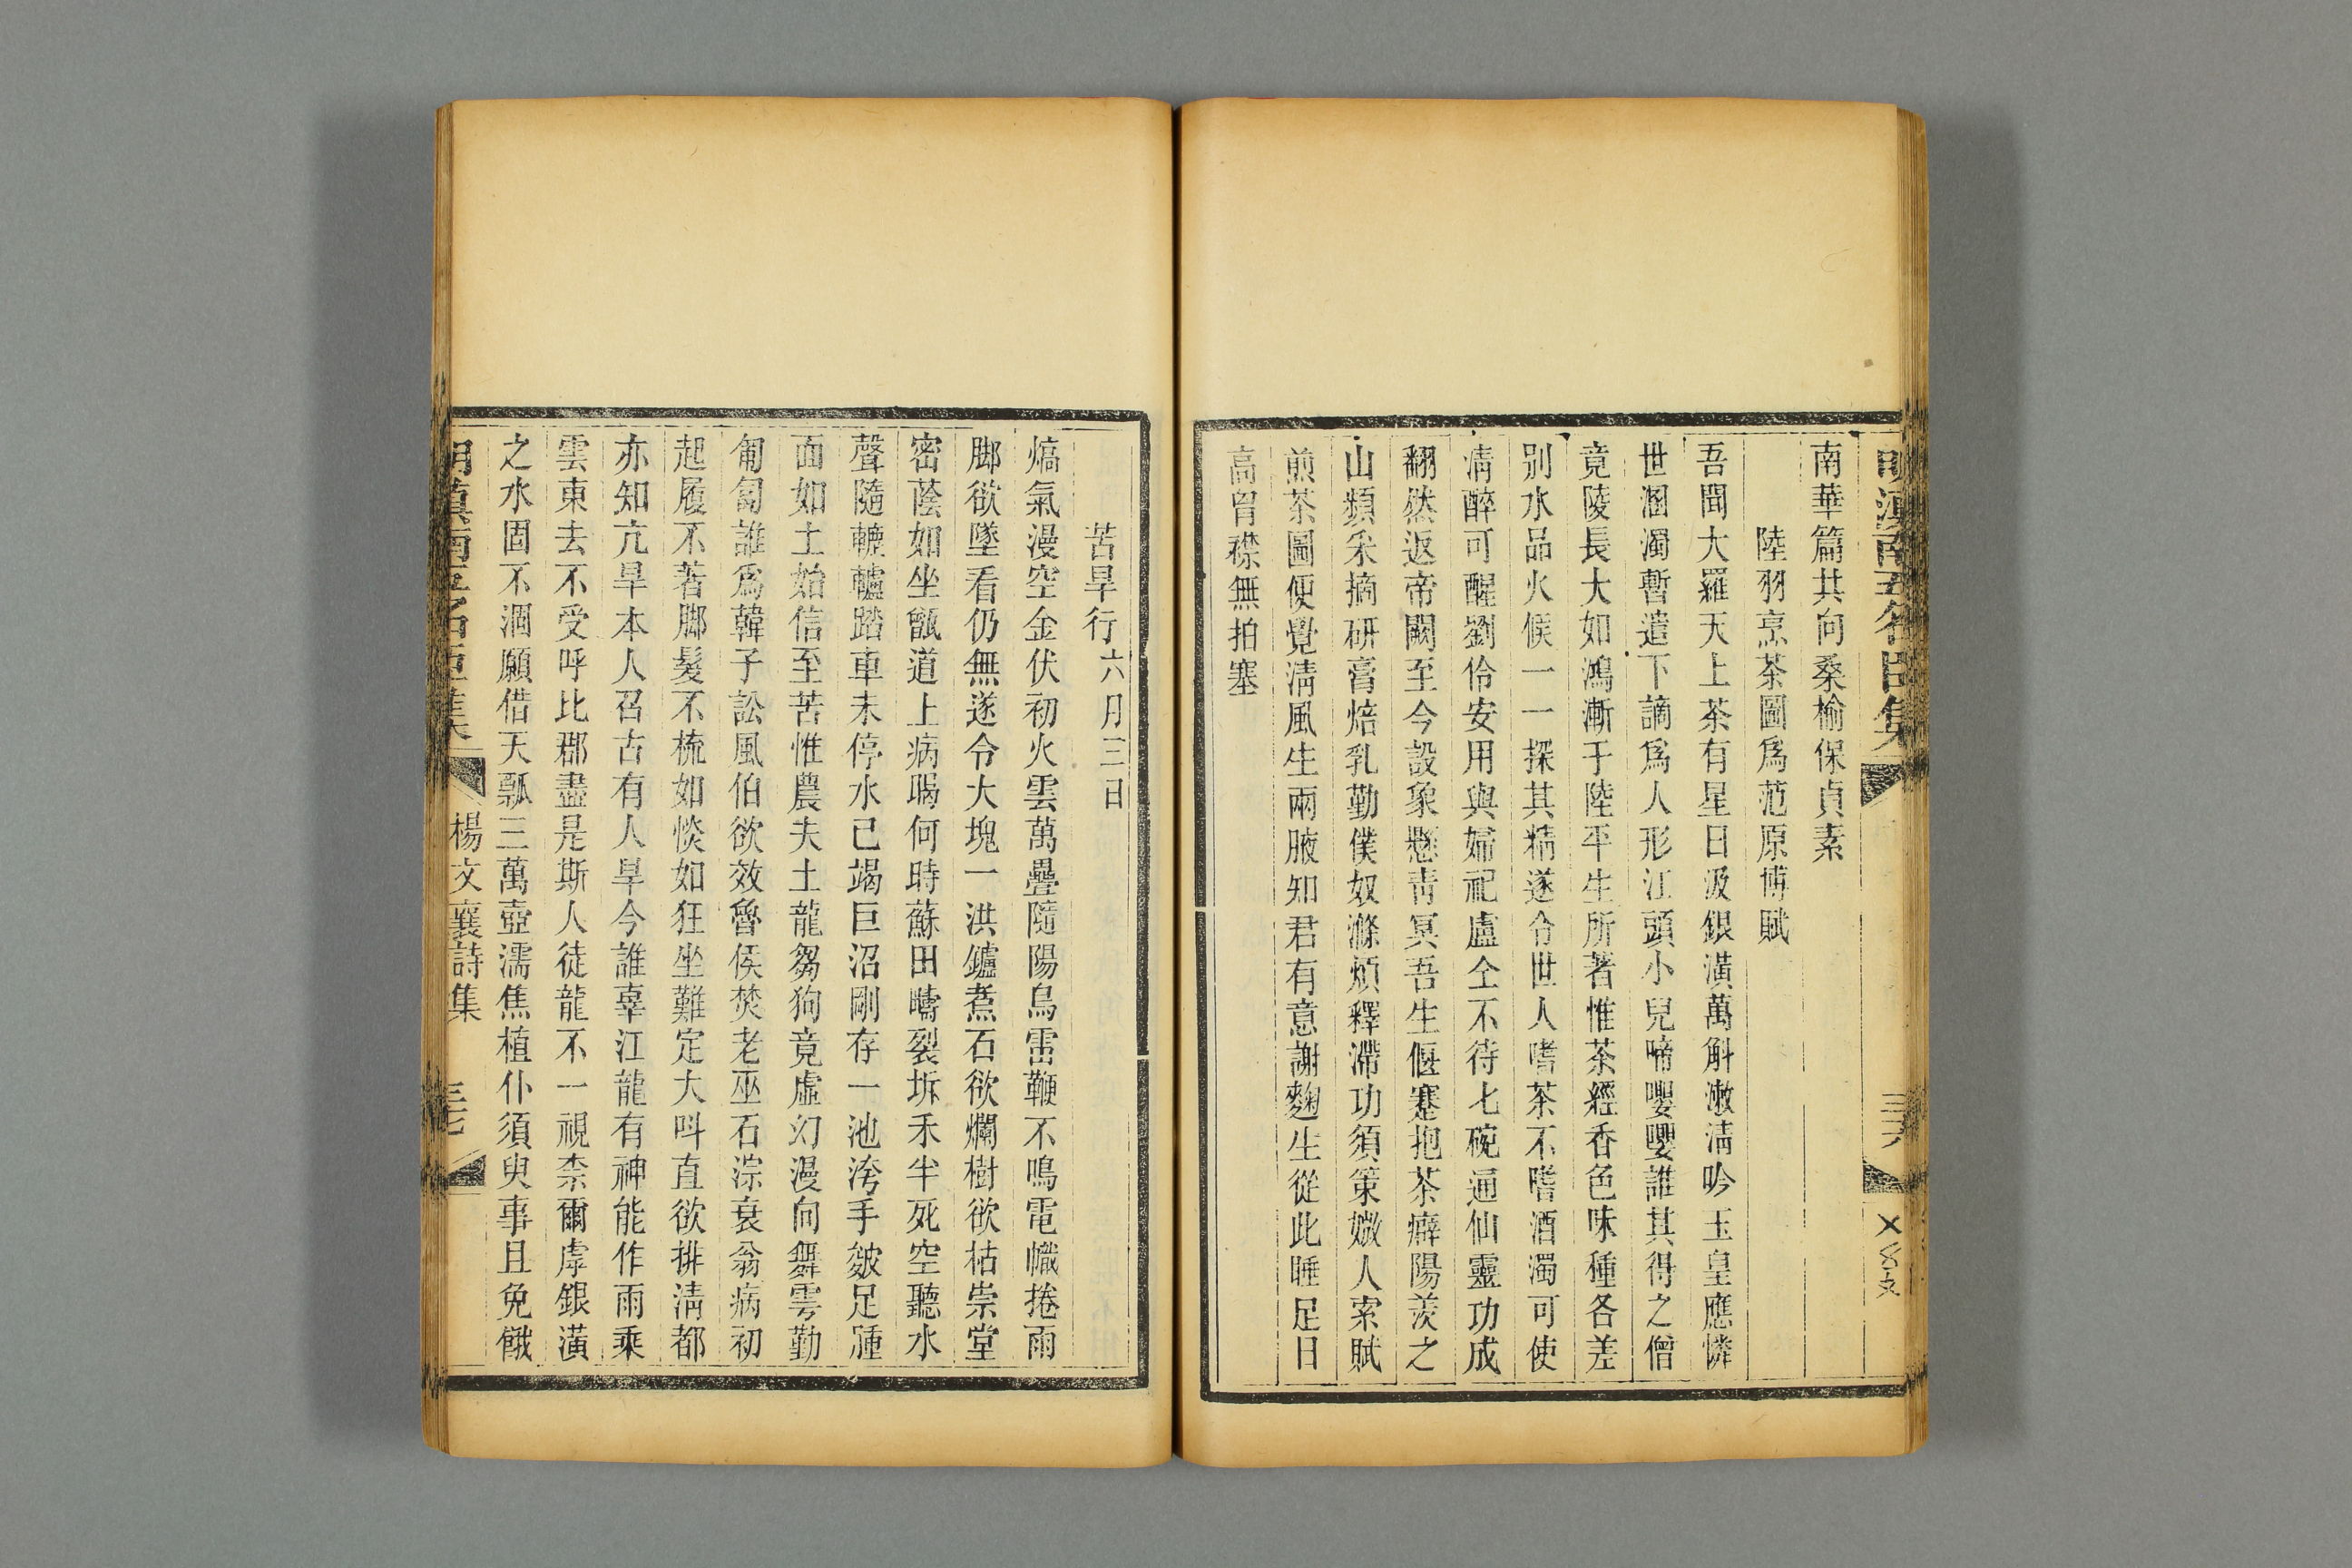 明滇南五名臣集
三六
南華篇其向桑榆保貞素
陸羽烹茶圖爲范原博賦
吾聞大羅天上茶有星日汲銀潢萬斛漱淸吟玉皇應憐
世溷濁暫遣下謫爲人形江頭小兒啼嚶嚶誰其得之僧
竟陵長大如鴻漸于陸平生所著惟茶經香色味種各差
别水品火候一一探其精遂令世人嗜茶不嗜酒濁可使
淸醉可醒劉伶安用與婦祀盧仝不待七碗通仙靈功成
翻然返帝闕至今設象懸靑冥吾生偃蹇抱茶癖陽羨之
山頻采摘硏膏焙乳勤僕奴滌煩釋滯功須策媺人索賦
煎茶圖便覺淸風生兩腋知君有意謝麴生從此睡足日
高曾襟無拍塞
苦旱行六月三日
熇氣漫空金伏初火雲萬疊隨陽烏雷鞭不鳴電幟捲雨
脚欲墜看仍無遂令大塊一洪鑪煑石欲爛樹欲枯崇堂
密蔭如坐甑道上病暍何時蘇田疇裂坼禾半死空聽水
聲隨轆轤踏車未停水已竭巨沼剛存一池洿手皴足腫
面如土始信至苦惟農夫土龍芻狗竟虛幻漫向舞雩勤
匍匐誰爲韓子訟風伯欲效魯侯焚老巫石淙衰翁病初
起履不著脚髮不梳如惔如狂坐難定大呌直欲排淸都
亦知亢旱本人召古有人旱今誰辜江龍有神能作雨乘
雲東去不受呼比郡盡是斯人徒龍不一視柰爾虖銀潢
之水固不涸願借天瓢三萬壺濡焦植仆須臾事且免餓
明滇南五名臣集
楊文襄詩集
三七